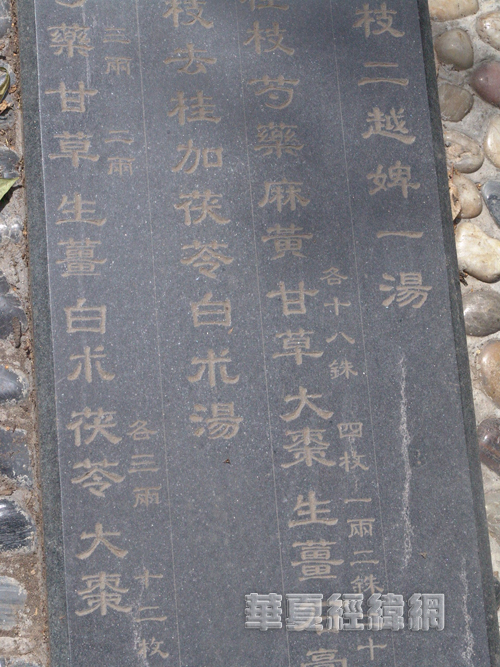 枝二越婢一湯
桂枝芍藥麻黃甘草各十八銖大棗四枚生薑一兩二銖膏十
枝去桂加茯苓白朮湯
芍藥三兩甘草二兩生薑白朮茯苓各三兩大棗十二枚
華夏經緯網